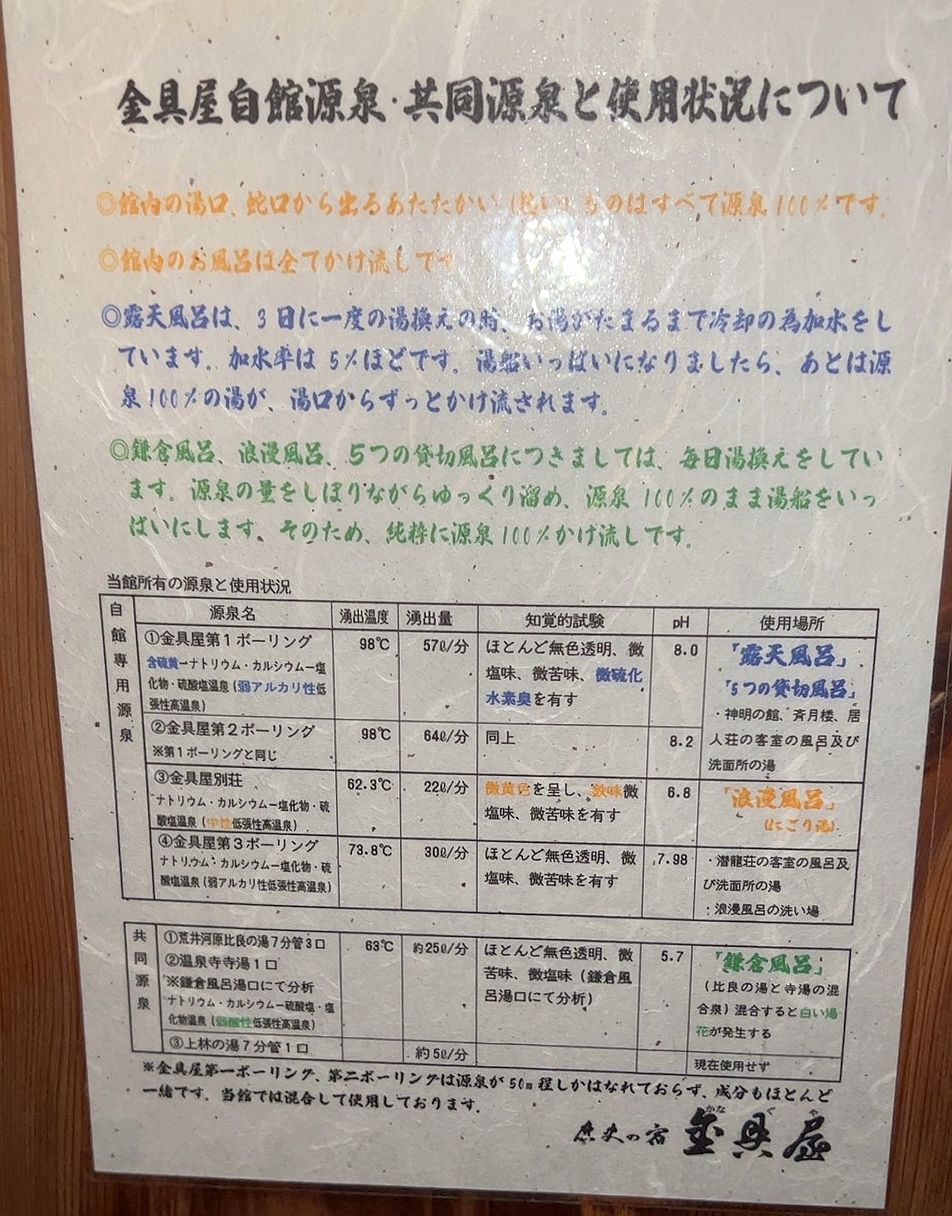 金具屋自館源泉・共同源泉と使用状況について
◎館内の湯口、蛇口から出るあたたかい(熱い)ものはすべて源泉100%です。
◎館内のお風呂は全てかけ流しです
◎露天風呂は、3日に一度の湯換えの時、お湯がたまるまで冷却の為加水をし
ています。加水率は5%ほどです。湯船いっぱいになりましたら、あとは源
泉100%の湯が、湯口からずっとかけ流されます。
◎鎌倉風呂、浪漫風呂、5つの貸切風呂につきましては、毎日湯換えをしてい
ます。源泉の量をしぼりながらゆっくり溜め、源泉100%のまま湯船をいっ
ぱいにします。そのため、純粋に源泉100%かけ流しです。
当館所有の源泉と使用状況
自館専用源泉
源泉名 湧出温度 湧出量 知覚的試験 pH 使用場所
①金具屋第1ボーリング 98℃ 57ℓ/分 ほとんど無色透明、微 8.0 「露天風呂」
含硫黄ーナトリウム・カルシウムー塩 塩味、微苦味、微硫化 「5つの貸切風呂」
化物・硫酸塩温泉(弱アルカリ性低 水素臭を有す ・神明の館、斉月楼、居
張性高温泉)
②金具屋第2ボーリング 98℃ 64ℓ/分 同上 8.2 人荘の客室の風呂及び
※第1ボーリングと同じ 洗面所の湯
③金具屋別荘 62.3℃ 22ℓ/分 微黄色を呈し、鉄味微 6.8 「浪漫風呂」
ナトリウム・カルシウムー塩化物・硫 塩味、微苦味を有す (にごり湯)
酸塩温泉(中性低張性高温泉)
④金具屋第3ボーリング 73.8℃ 30ℓ/分 ほとんど無色透明、微 7.98 ・潜龍荘の客室の風呂及
ナトリウム・カルシウムー塩化物・硫 塩味、微苦味を有す び洗面所の湯
酸塩温泉(弱アルカリ性低張性高温泉) ・浪漫風呂の洗い場
共同源泉
①荒井河原比良の湯7分管3口 63℃ 約25ℓ/分 ほとんど無色透明、微 5.7 「鎌倉風呂」
②温泉寺寺湯1口 苦味、微塩味(鎌倉風 (比良の湯と寺湯の混
※鎌倉風呂湯口にて分析 呂湯口にて分析) 合泉)混合すると白い湯
ナトリウム・カルシウムー硫酸塩・塩 花が発生する
化物温泉(弱酸性低張性高温泉)
③上林の湯7分管1口 約5ℓ/分 現在使用せず
※金具屋第一ボーリング、第二ボーリングは源泉が50m程しかはなれておらず、成分もほとんど
一緒です。当館では混合して使用しております。
歴史の宿 金具屋
かなぐや